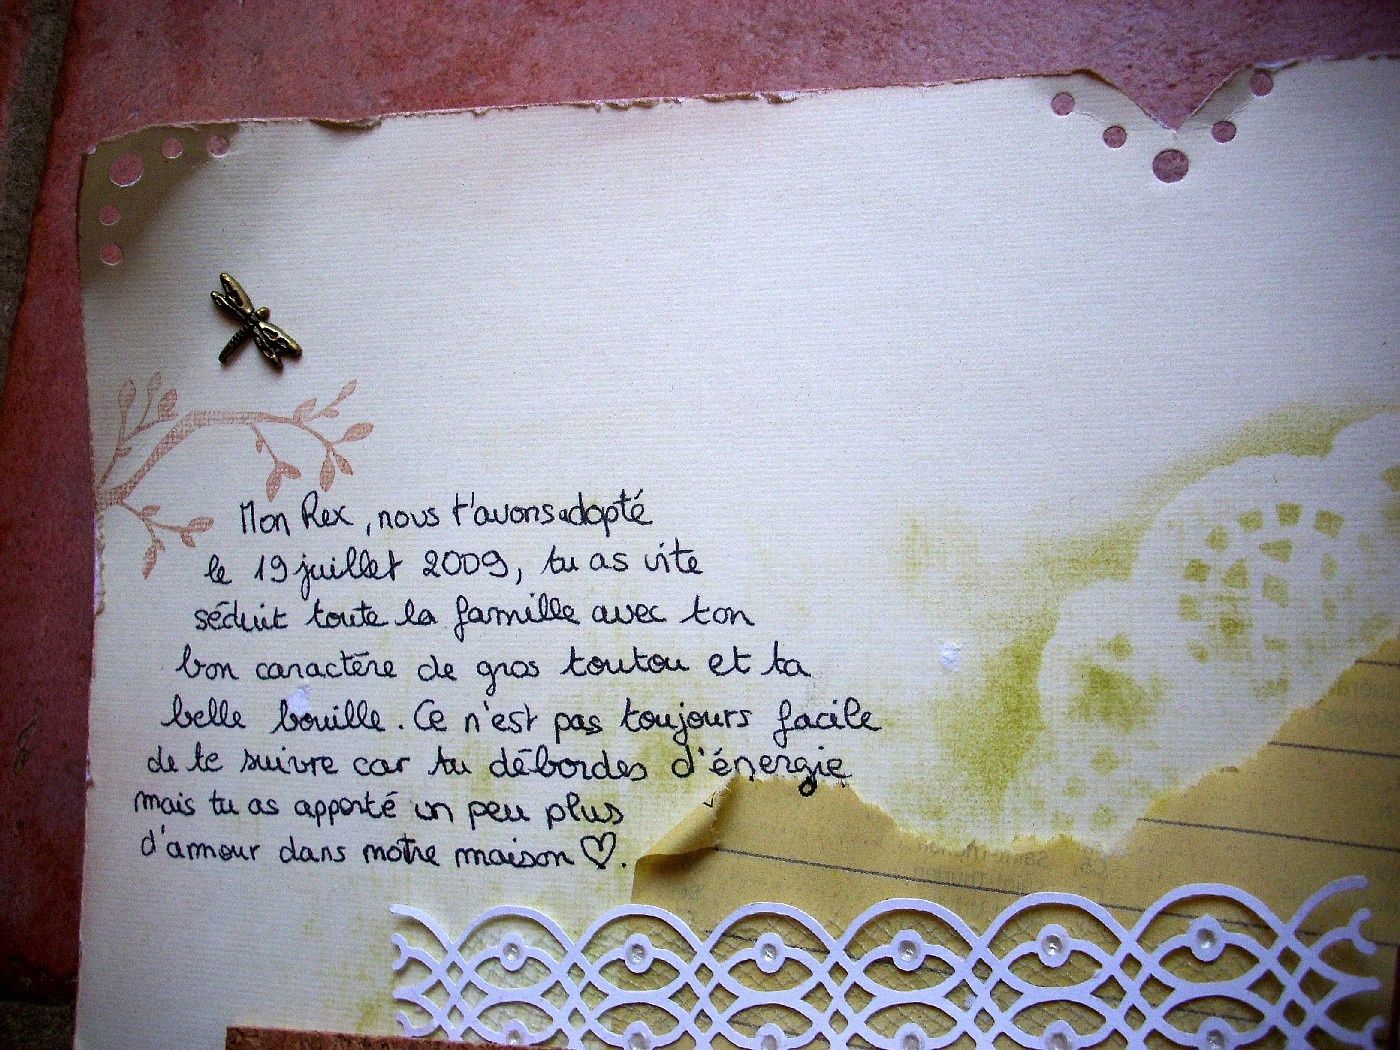 Mon Rex, nous t'avons adopté
le 19 juillet 2009, tu as vite
séduit toute la famille avec ton
bon caractère de gros toutou et ta
belle bouille. Ce n'est pas toujours facile
de te suivre car tu débordes d'énergie
mais tu as apporté un peu plus
d'amour dans notre maison ♡.